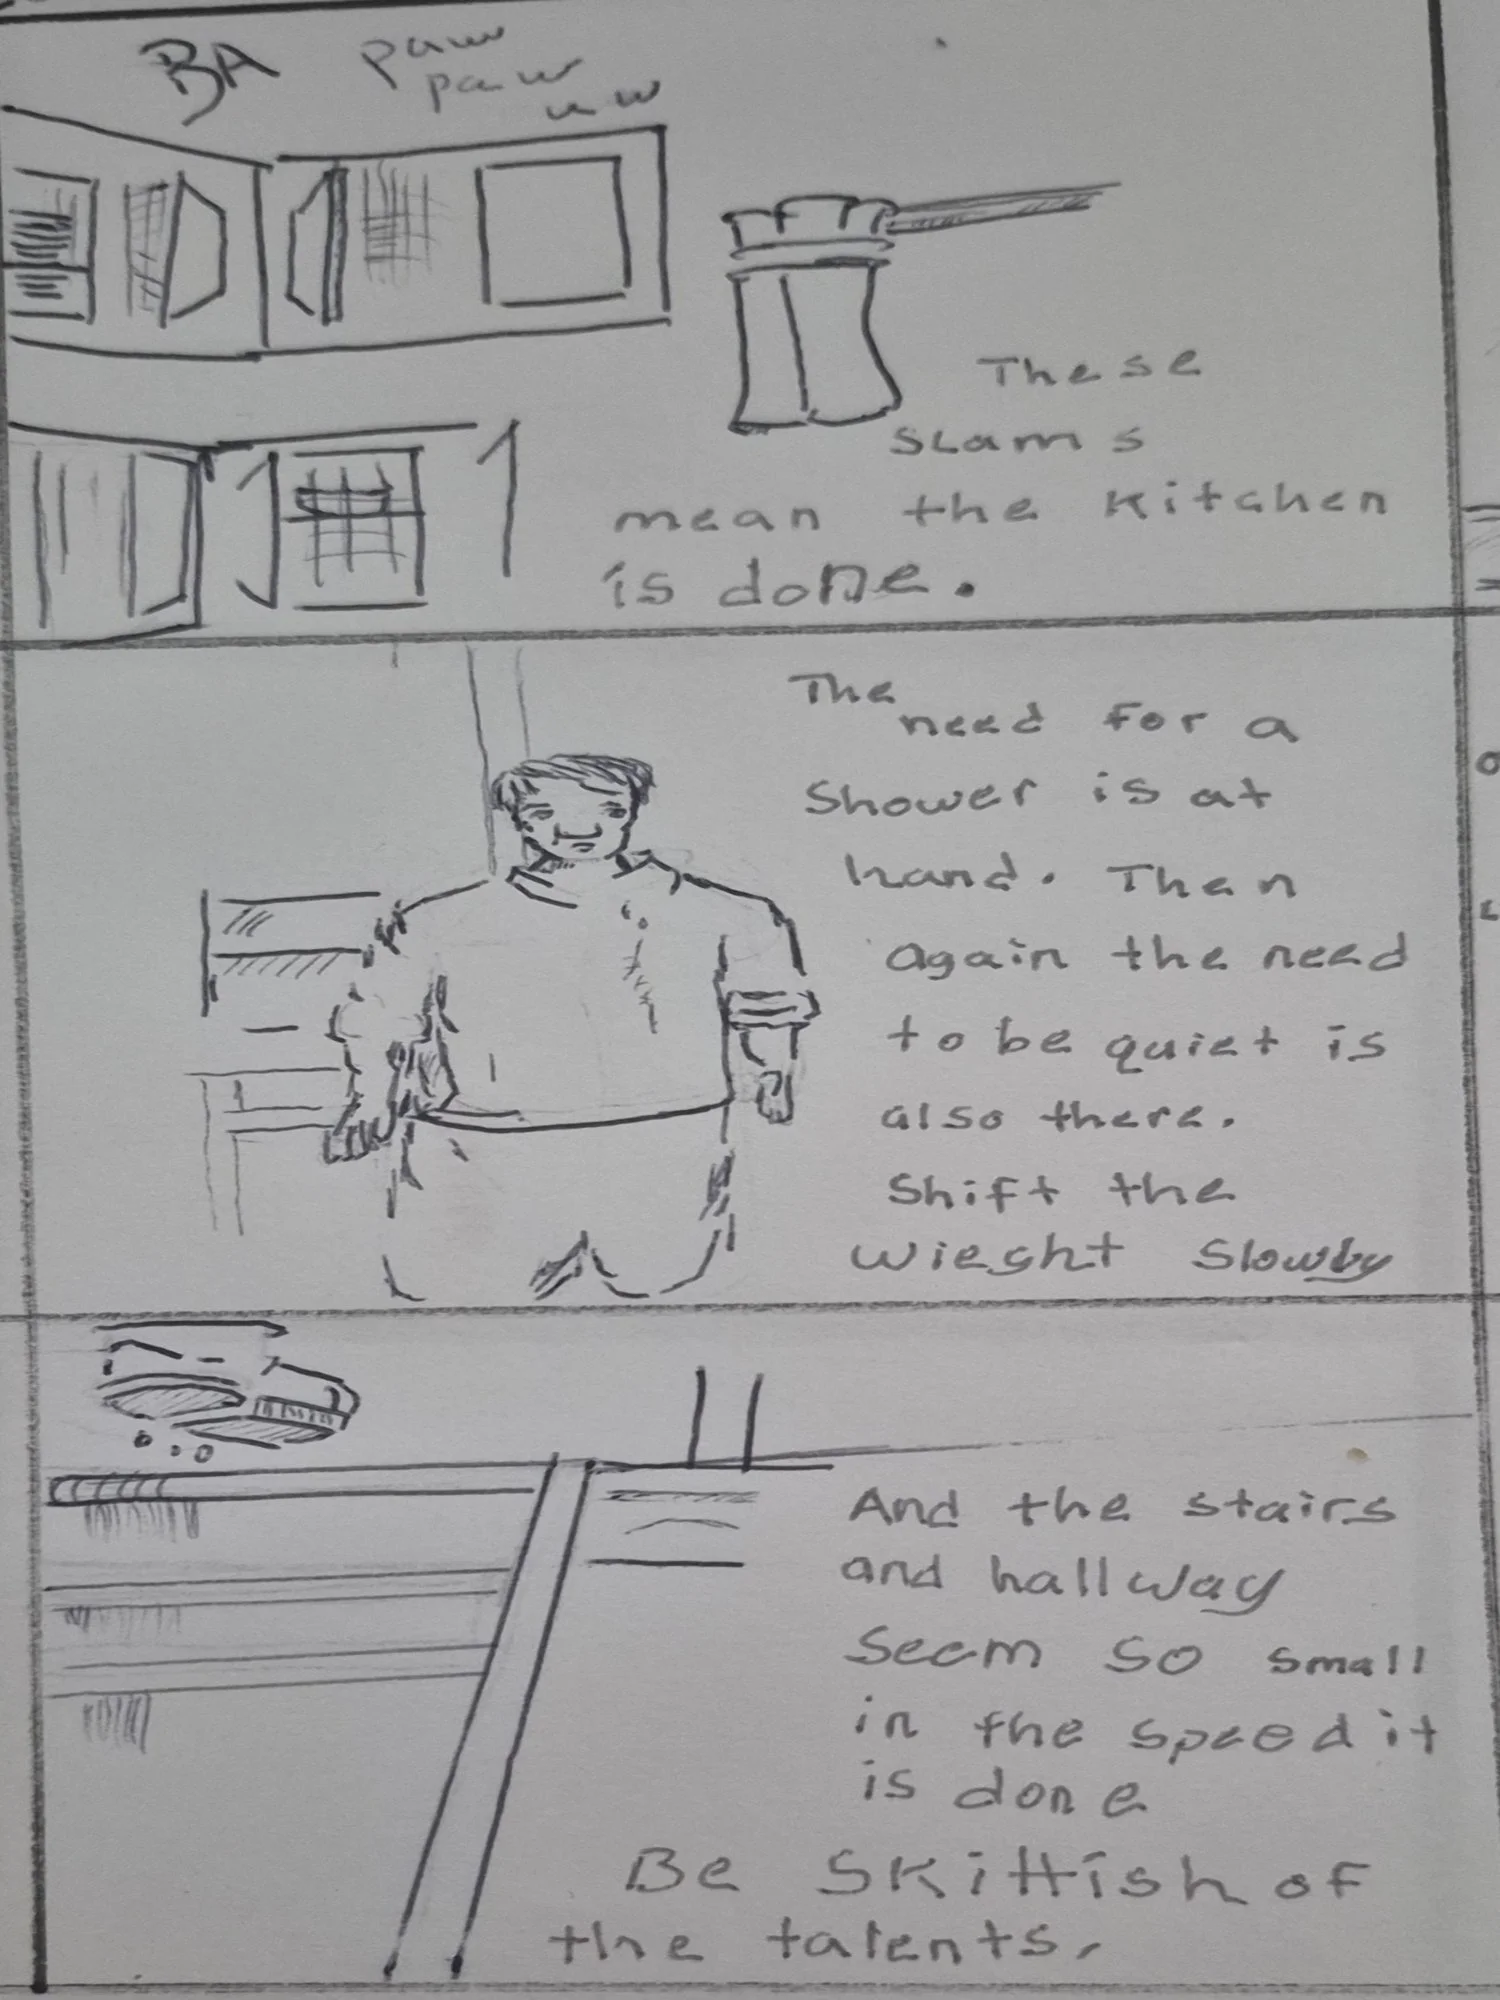 BA
paw
paw
uw
These
slams
mean the kitchen
is done.
The
need for a
shower is at
hand. Then
again the need
to be quiet is
also there.
Shift the
wieght slowly
And the stairs
and hallway
seem so small
in the speed it
is done
Be skittish of
the talents,